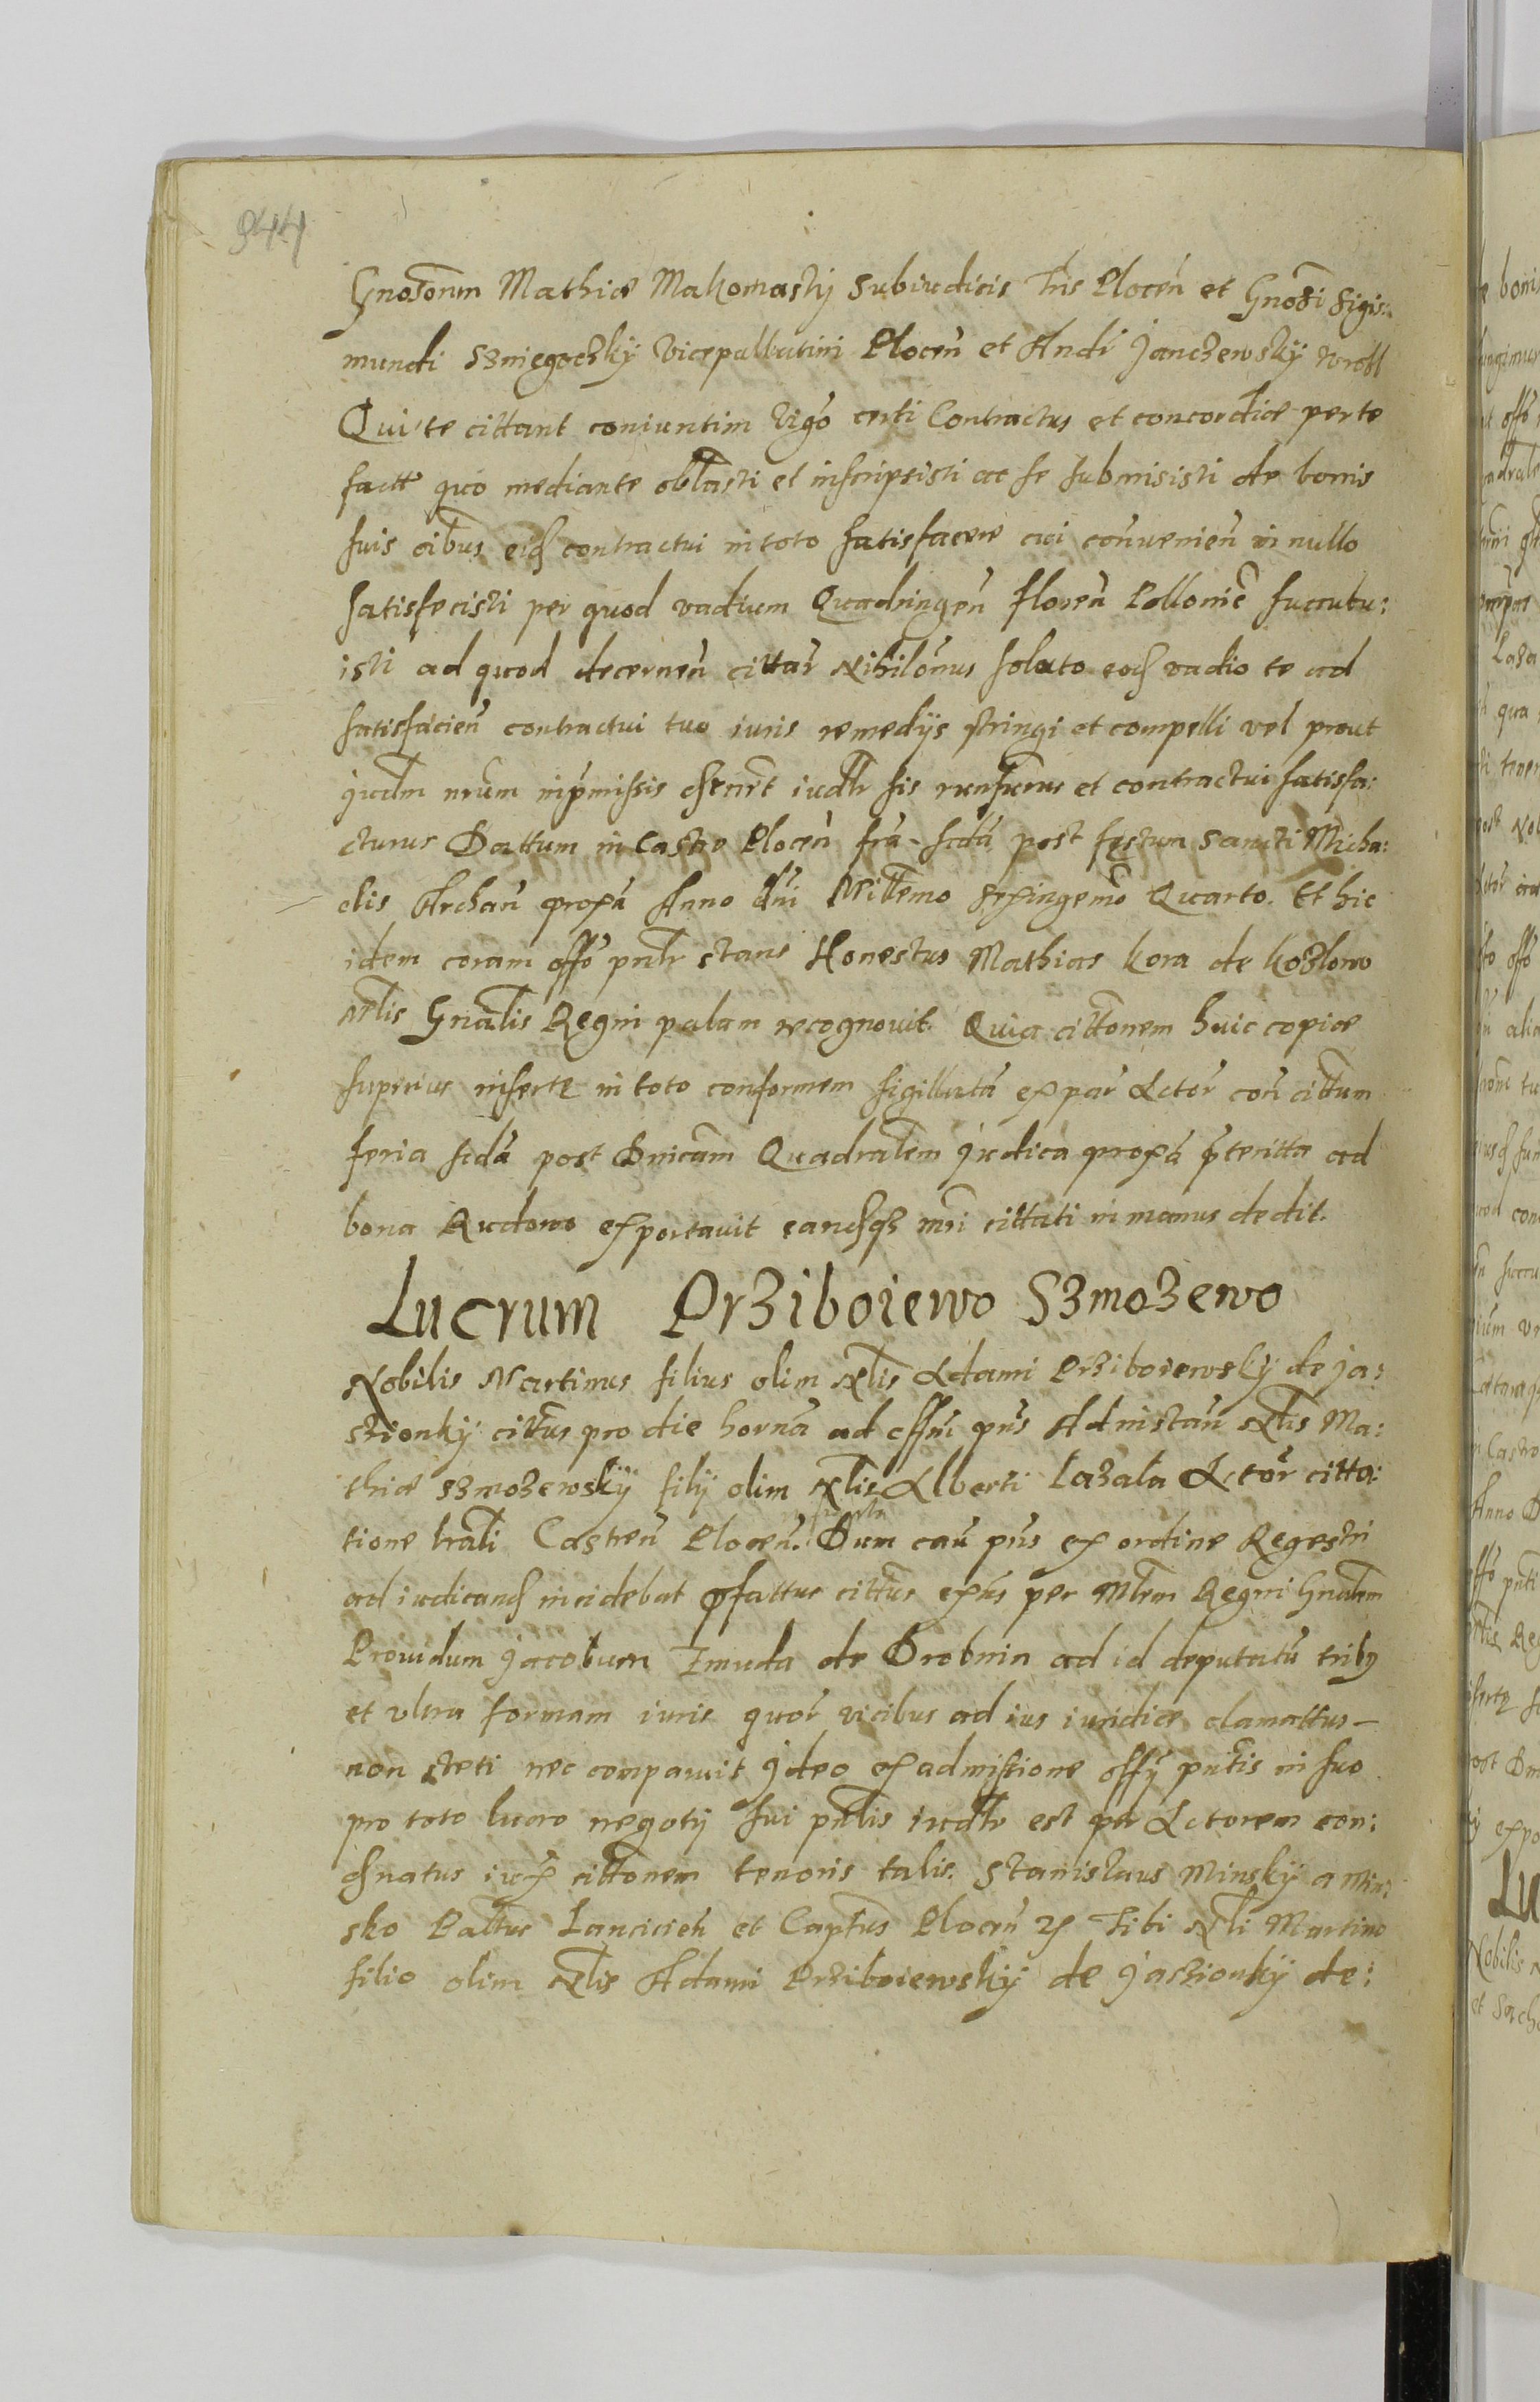 944
Gnosorum Mathiæ Makomasky Subiudicis Tris Plocen et Gnosi Sigis:
mundi Szniegoczky Vicepallatini Plocen et Andi Janczewsky
Qui te cittant coniuntim Vigo certi Contractus et concordiæ per te
factæ quo mediante oblasti et inscripsisti ac se submisisti de bonis
suis oibus eid contractui in toto satisfacere cui convenien in nullo
satisfecisti per quod vadium Quadringen floren Pollonic succubu:
isti ad quod decernen cittar Nihilomus soluto eod vadio te ad
satisfacien contractui tuo iuris remedijs stringi et compelli vel prout
iudm nrum in pmissis iudlr sis rensurus et contractui satisfa:
cturus Dattum in Castro Plocen fra scda post festum Sancti Micha:
elis Archan proxa Anno Dni Millemo Sexingemo Quarto. Et hic
idem coram offo pntr stans Honestus Mathias Kora de Kozlowo
Mlis Gnalis Regni palam recognovit. Quia cittonem huic copiæ
superius insertę in toto conformem sigillata ex par Actor con cittum
feria scda post Dnicam Quadralem Judica proxa pteritta ad
bona Rudowo exportavit eandqz mri cittati in manus dedit.
Lucrum Prziboiewo Szmozewo
Nobilis Martinus filius olim Nlis Adami Prziboiewsky de Ja:
szionky cittus pro die horna ad offm pns Ad instan Nlis Ma:
thiæ Szmozewsky filij olim Nlis Alberti Lazala Actor citta:
tione lrali Castren Plocen. Dum cau pns ex ordine Regestri
ad iudicand incidebat pfattus cittus exns per Mlrem Regni Gnalem
Providum Jacobum Zmuda de Drobnin ad id deputatu tribq
et vltra formam iuris quor vicibus ad ius iuridice clamattus –
non steti nec comparuit Ideo ex admissione offy pntis in suo
pro toto lucro negotij sui pntis iudlr est per Actorem con:
dnatus iux cittonem tenoris talis. Stanislaus Minsky a Min:
sko Palttus Lancicien et Captus Plocen Tibi Nli Martino
filio olim Nlis Adami Prziboiewsky de Jaszionky de: